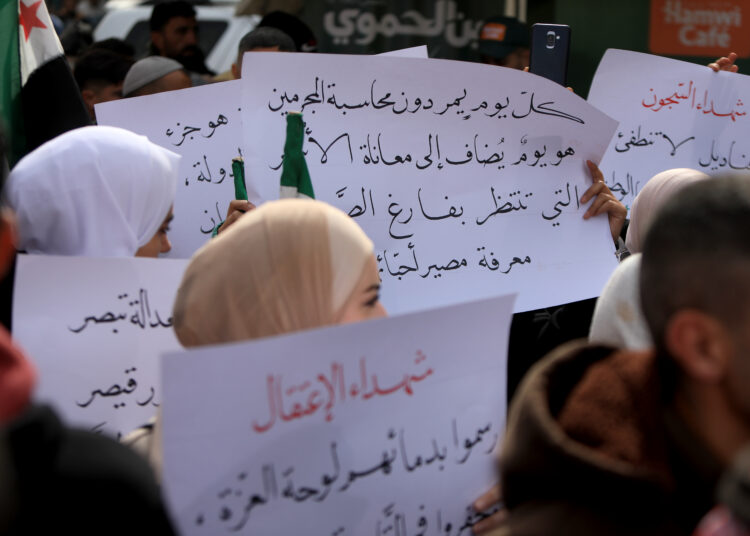 بن الحموي
Hamwi
Café
كلّ يوم يمر دون محاسبة المجرمين
هو يومٌ يُضاف إلى معاناة الأ
التي تنتظر بفارغ الصَّ
معرفة مصير أحبّائ
هو جزء
دولة،
شهداء السّجون
لا تنطفئ
ناديل
عدالة تبصر
قيصر
شهداء الإعتقال
رسموا بدمائهم لوحة العزّة،